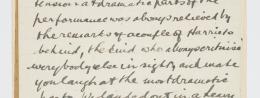 tension at dramatic parts of the
performance was always relieved by
the remarks of a couple of Harriets
behind, the kind who always criticise
everybody else in sight, and make
you laugh at the most dramatic
out in a heavy